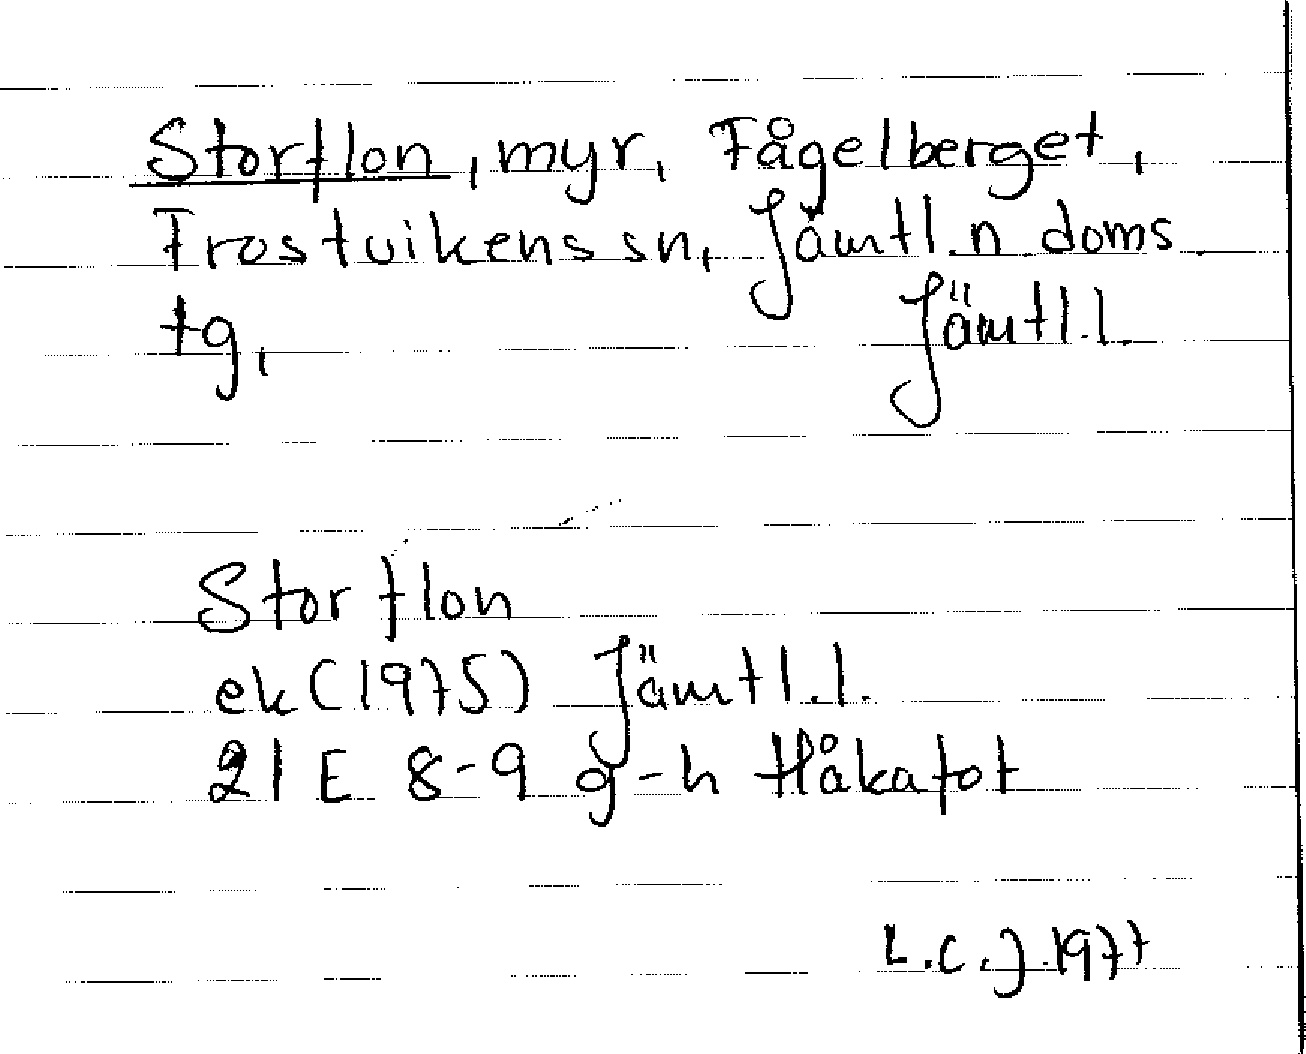 Storflon, myr, Fågelberget,
Frostvikens sn, Jämtl. n. doms
tg, Jämtl. l.
Storflon
ek (1975) Jämtl. l.
21 E 8-9 g-h Håkafot
L.C.J. 1977